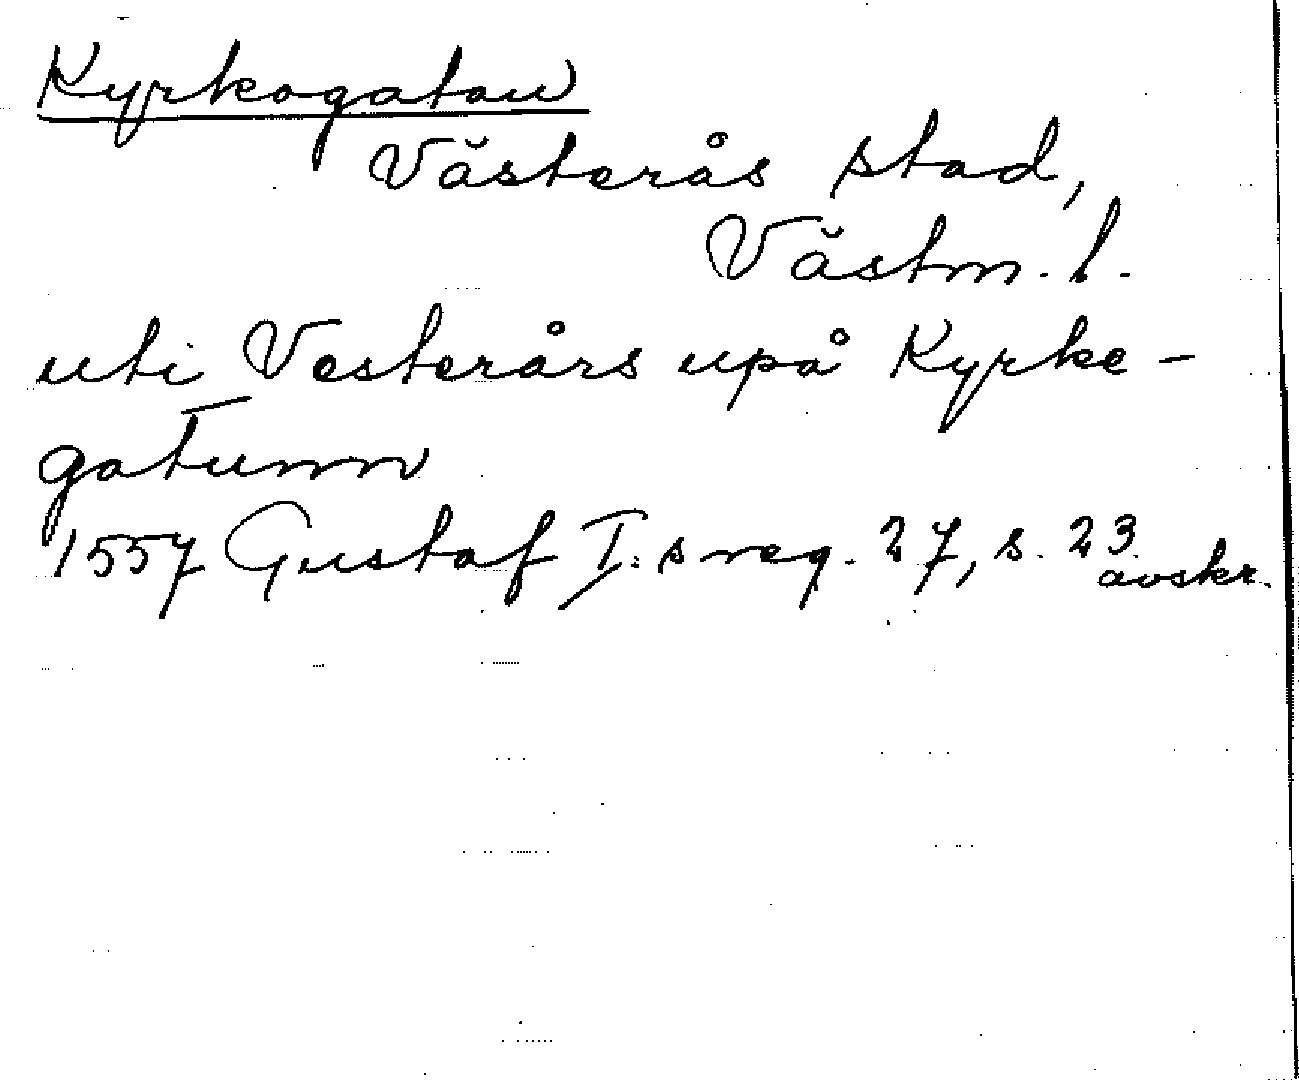 Kyrkogatan
Västerås stad,
Västm. l.
uti Vesterårs upå Kyrke-
gatunn
1557 Gustaf I:s reg. 27, s. 23
avskr.